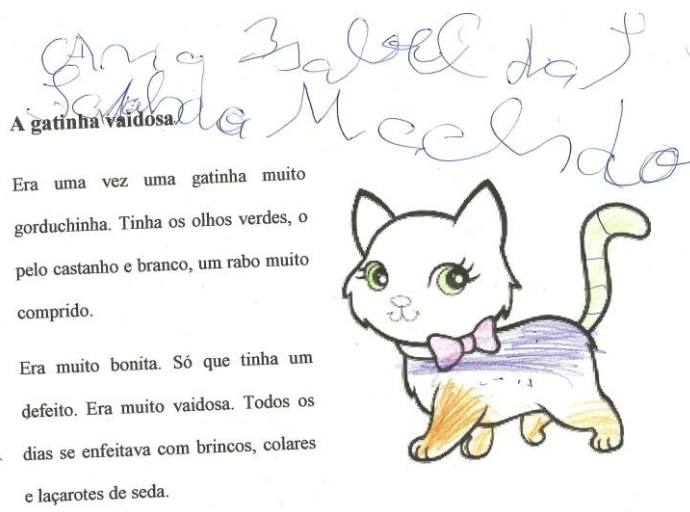 Ana Isabel da S
Machado
A gatinha vaidosa
Era uma vez uma gatinha muito
gorduchinha. Tinha os olhos verdes, o
pelo castanho e branco, um rabo muito
comprido.
Era muito bonita. Só que tinha um
defeito. Era muito vaidosa. Todos os
dias se enfeitava com brincos, colares
e laçarotes de seda.